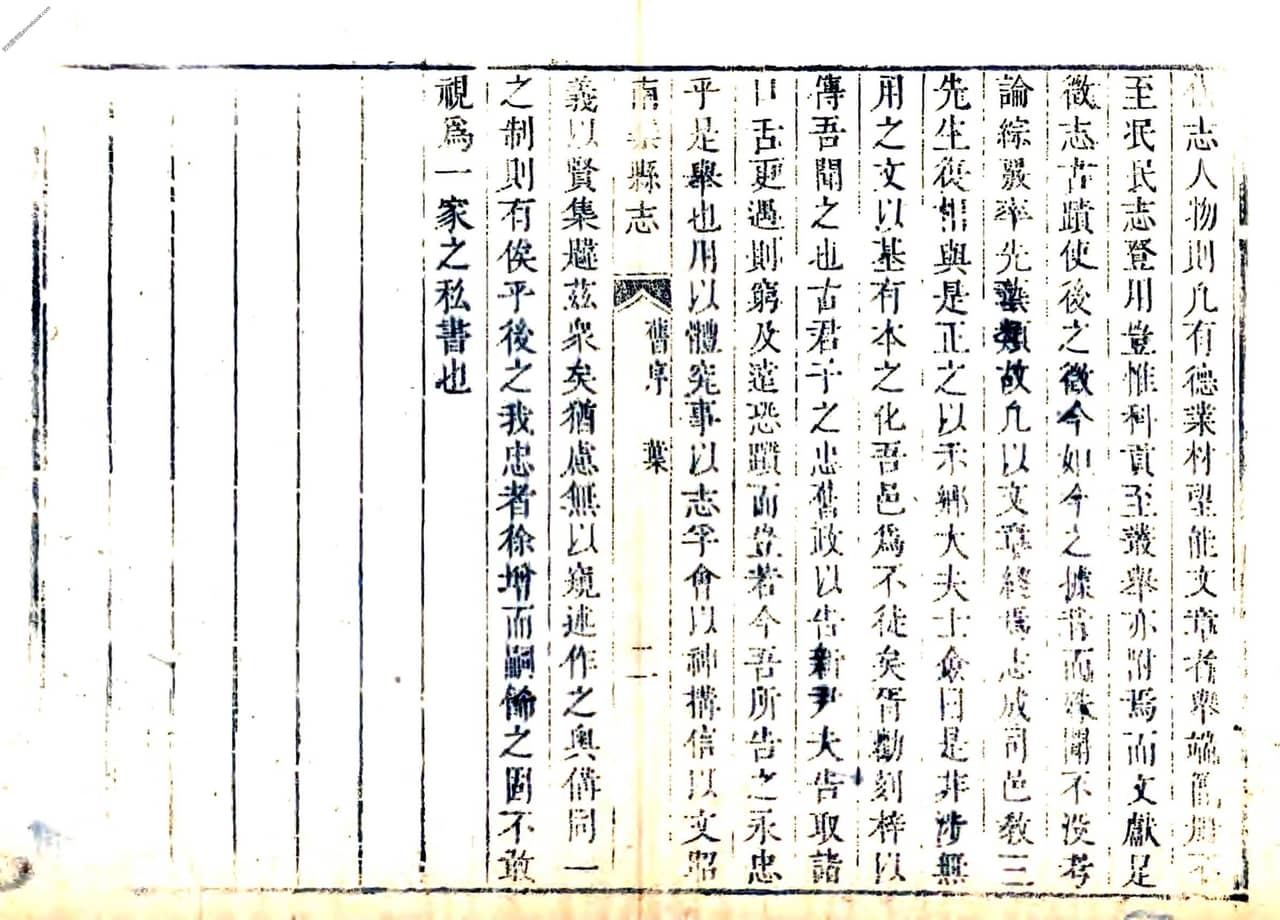 志人物則凡有德業材望能文章者畢
至氓民志登用豈惟科貢至叢舉亦附焉而文獻足
徵志古蹟使後之徵今如今之據昔而殊聞不沒考
論綜嚴率先類故凡以文章終焉志成司邑教三
先生復相與是正之以示鄉大夫士僉曰是非涉無
用之文以基有本之化吾邑為不徒矣胥勸刻梓以
傳吾聞之也古君子之忠舊政以告新尹大告取諸
口舌更遇則窮及遠恐躓而豈若今吾所告之永忠
乎是舉也用以體究事以志孚會以神搆信以文昭
南縣志 舊序 葉 二
義以賢集趨茲眾矣猶慮無以窺述作之奧備同一
之制則有俟乎後之我忠者徐增而嗣餙之固不敢
視為一家之私書也